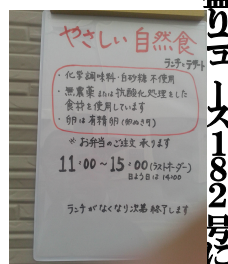 やさしい自然食
ランチ&デザート
・化学調味料・白砂糖不使用
・無農薬または抗酸化処理をした
食材を使用しています
・卵は有精卵(卵ぬき可)
※お弁当のご注文承ります
11:00~15:00(ラストオーダー)
日よう日は14:00
ランチがなくなり次第終了します
盛りニュース182号に